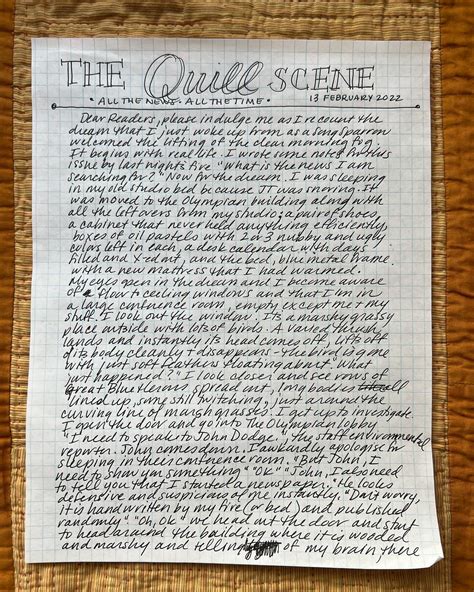 THE Quill SCENE
• ALL THE NEWS • ALL THE TIME • 13 FEBRUARY 2022
Dear Readers, please indulge me as I recount the
dream that I just woke up from as a song sparrow
welcomed the lifting of the clear morning fog.
It begins with real life. I wrote some notes for this
issue by last night's fire. "What is the news I am
searching for?" Now for the dream. I was sleeping
in my old studio bed because JT was snoring. It
was moved to the Olympian building along with
all the leftovers from my studio; a pair of shoes,
a cabinet that never held anything efficiently,
boxes of oil pastels with 2 or 3 nubby and ugly
colors left in each, a desk calendar with days
filled and X-ed out, and the bed, blue metal frame
with a new mattress that I had warmed.
My eyes open in the dream and I become aware
of floor to ceiling windows and that I'm in
a large conference room, empty except me & my
stuff. I look out the window. It's a marshy grassy
place outside with lots of birds. A varied thrush
lands and instantly its head comes off, lifts off
of its body cleanly & disappears - the bird is gone
with just soft feathers floating about. What
just happened? I look closer and see rows of
Great Blue Herons spread out, bodies
lined up, some still twitching, just around the
curving line of marsh grasses. I get up to investigate.
I open the door and go into The Olympian lobby
"I need to speak to John Dodge", the staff environmental
reporter. John comes down. I awkwardly apologise for
sleeping in their conference room. "But John, I
need to show you something" "Ok" "John, I also need
to tell you that I started a newspaper." He looks
defensive and suspicious of me instantly. "Don't worry,
it is handwritten by my fire (or bed) and published
randomly." "Oh, ok" we head out the door and start
to head around the building where it is wooded
and marshy and telling of my brain, there